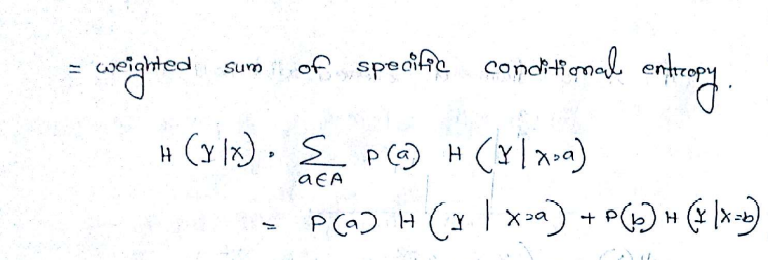 = weighted sum of specific conditional entropy.
H (Y|X) = ∑ a∈A P(a) H (Y | X=a)
= P(a) H (Y | X=a) + P(b) H (Y | X=b)